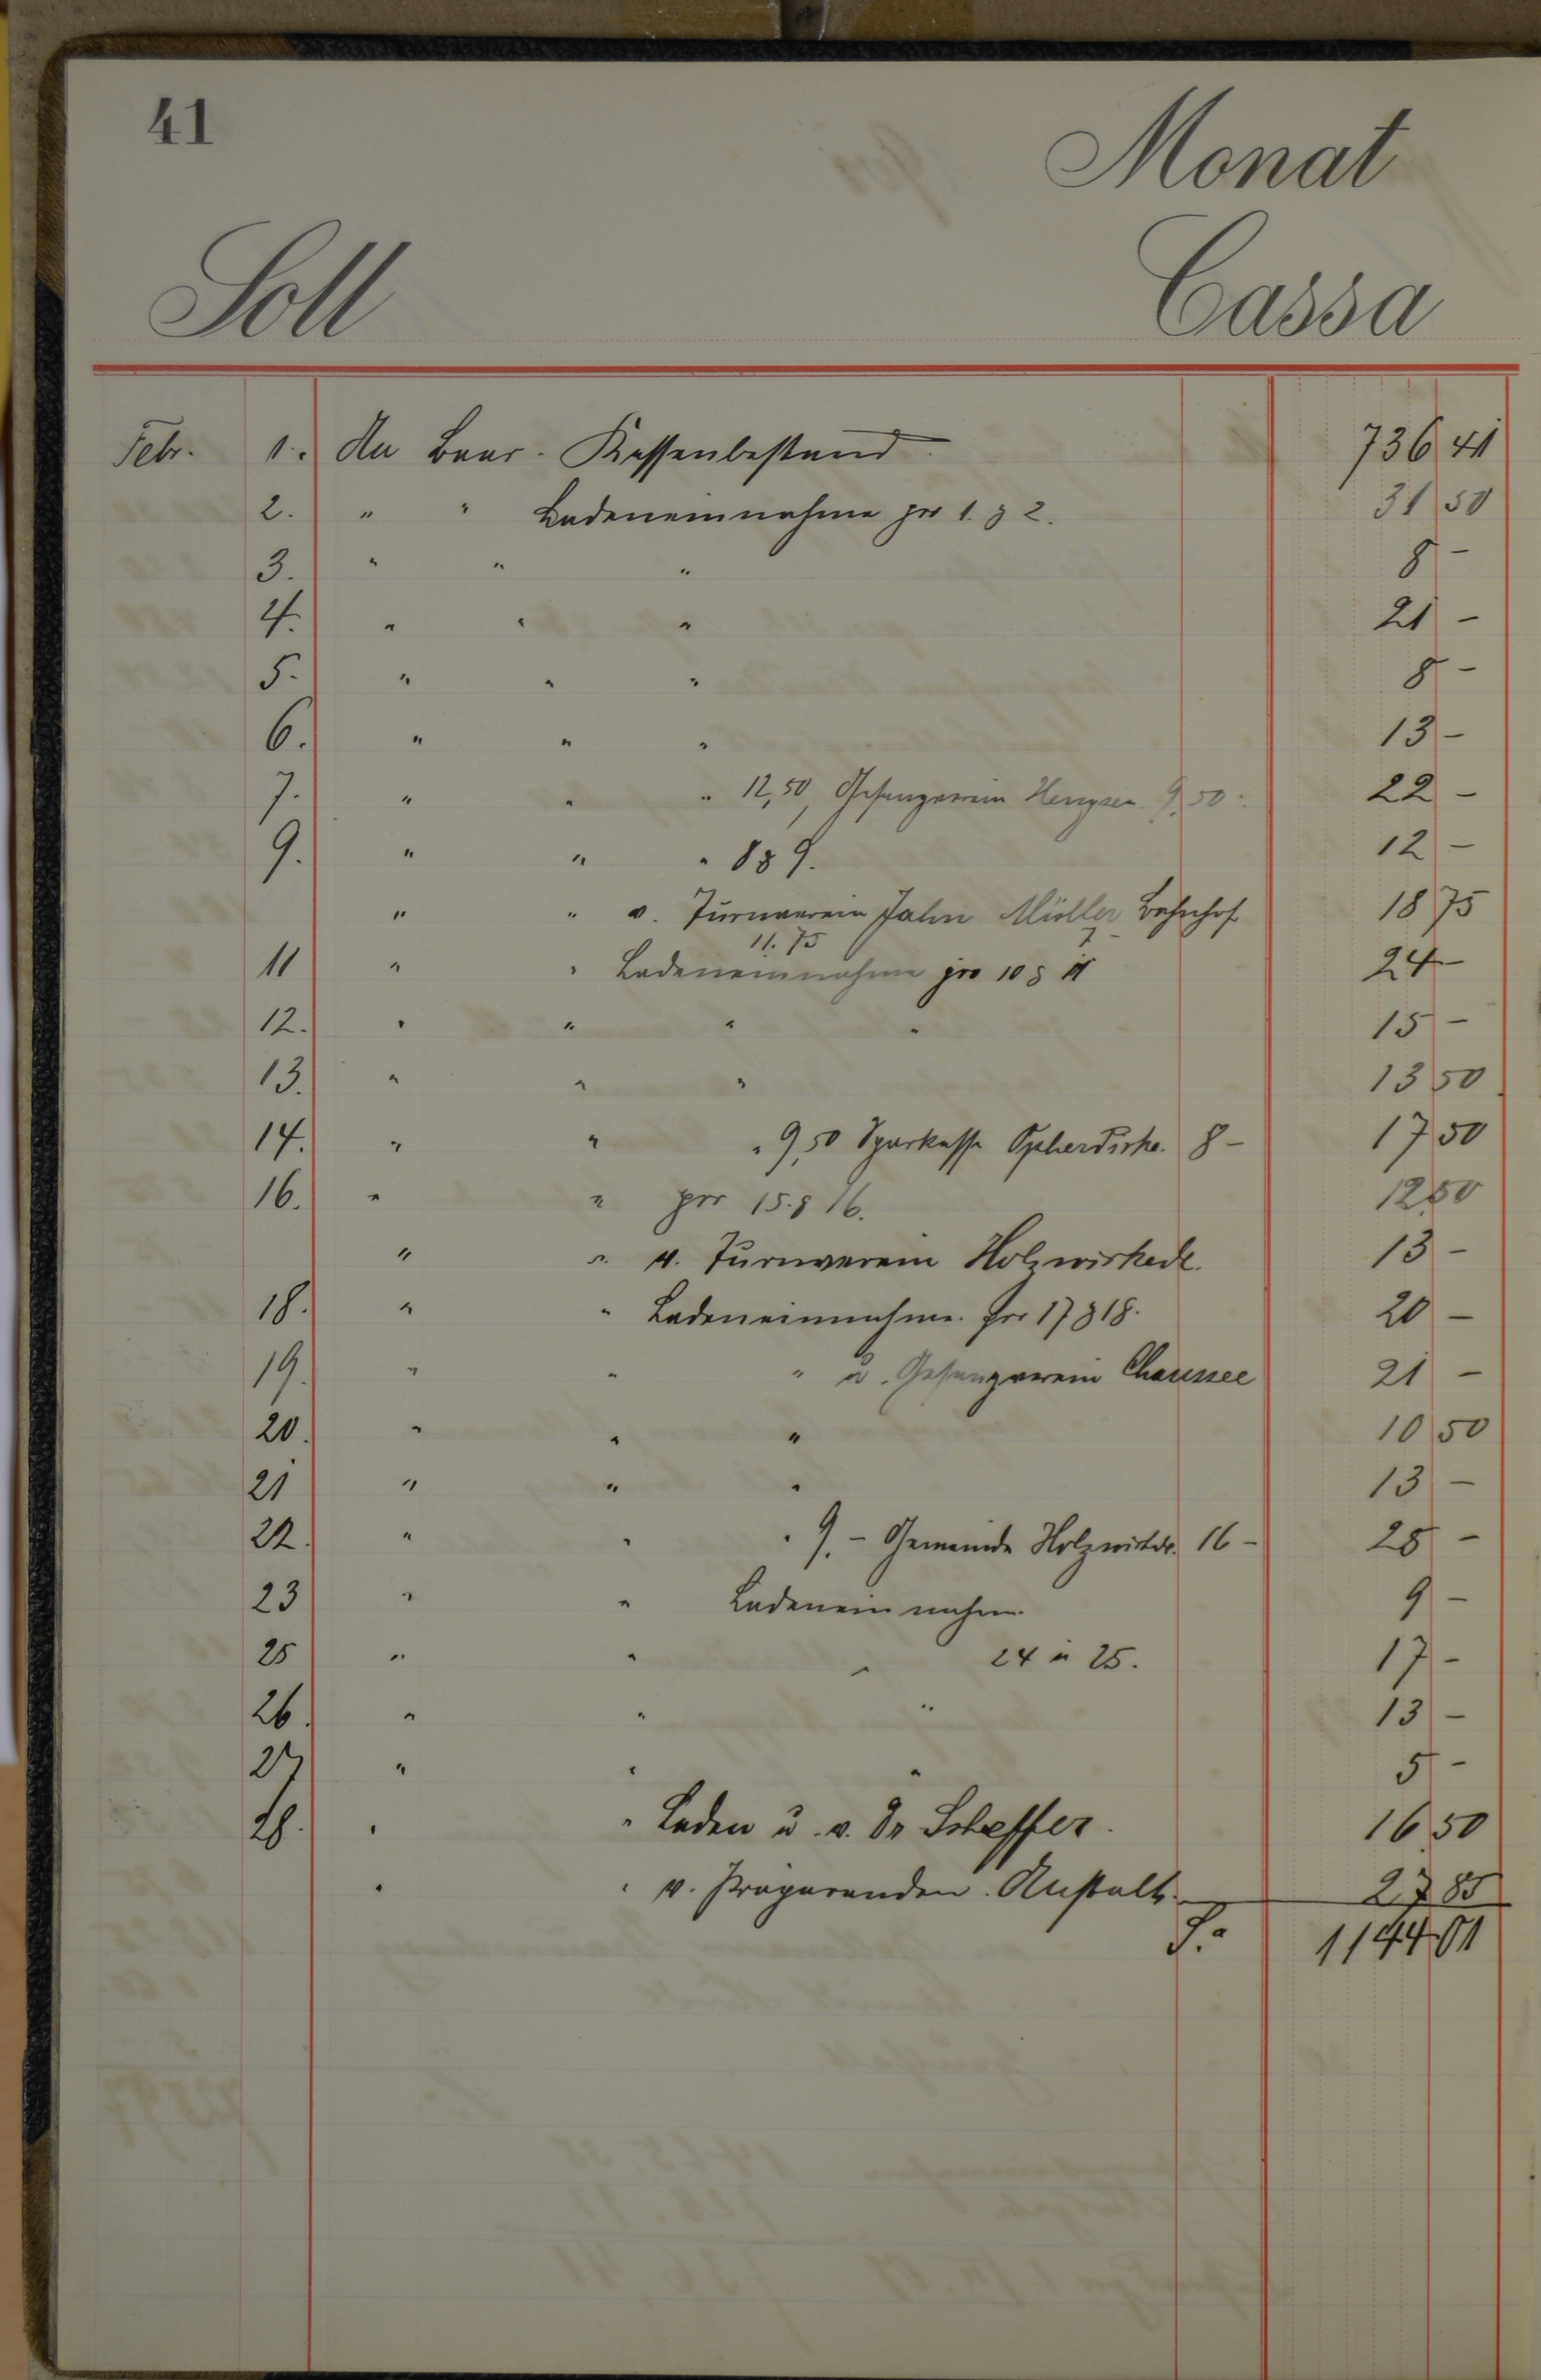 41
Monat
Soll Cassa
Febr. 1. An Baar-Kassenbestand 736 41
2. " " Ladeneinnahme pr 1. & 2. 31 50
3. " " " 8 -
4. " " " 21 -
5. " " " 8 -
6. " " " 13 -
7. " " " 12,50, Gesangverein Hengsen. 9,50. 22 -
9. " " " 8 & 9. 12 -
" " v. Turnverein Jahn Müller Bahnhof 18 75
11.75 7-
11 " " Ladeneinnahme pro 10 & 11 24 -
12. " " " " 15 -
13. " " " 13 50
14. " " " 9,50 Sparkasse Opherdicke. 8 - 17 50
16. " " pro 15. & 16. 12 50
" " v. Turnverein Holzwickede. 13 -
18. " " Ladeneinnahme. pro 17 & 18. 20 -
19. " " " u. Gesangverein Chaussee 21 -
20. " " " 10 50
21 " " " 13 -
22. " " " 9.- Gemeinde Holzwickede. 16 - 25 -
23 " " Ladeneinnahm. 9 -
25 " " " 24 u 25. 17 -
26. " " " 13 -
27. " " " 5 -
28. " " Laden u. v. Dr Scheffer. 16 50
" " v. Präparanden-Anstalt. 27 85
S.a 1144 01